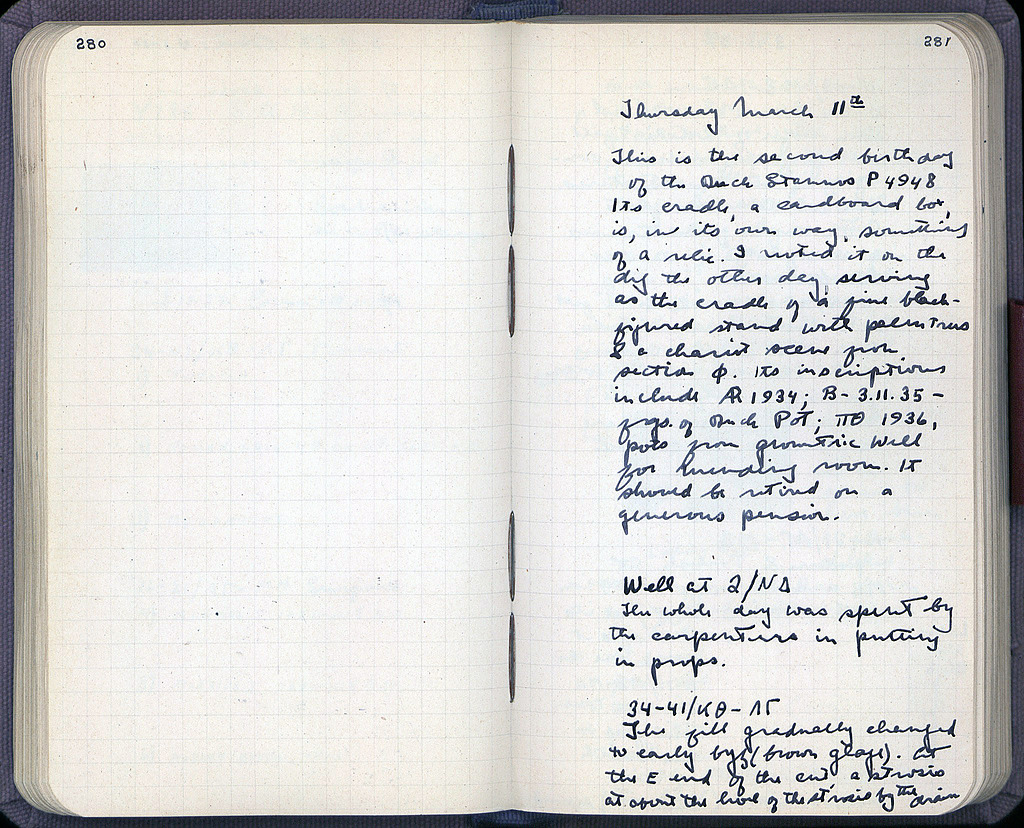 280
281
Thursday March 11th
This is the second birthday
of the Duck Stamnos P 4948
Its cradle, a cardboard box,
is, in its own way, something
of a relic. I noted it on the
dig the other day, serving
as the cradle of a fine black-
figured stand with palm trees
& a chariot scene from
section Φ. Its inscriptions
include AR 1934; B- 3.11.35 -
frgs. of Duck Pot; ΠΘ 1936,
pots from geometric well
for mending room. It
should be retired on a
generous pension.
Well at 2/ΝΔ
The whole day was spent by
the carpenters in putting
in props.
34-41/ΚΘ-ΛΓ
The fill gradually changed
to early byz (brown glaze). At
the E end of the cut a strosis
at about the level of the strosis by the drain